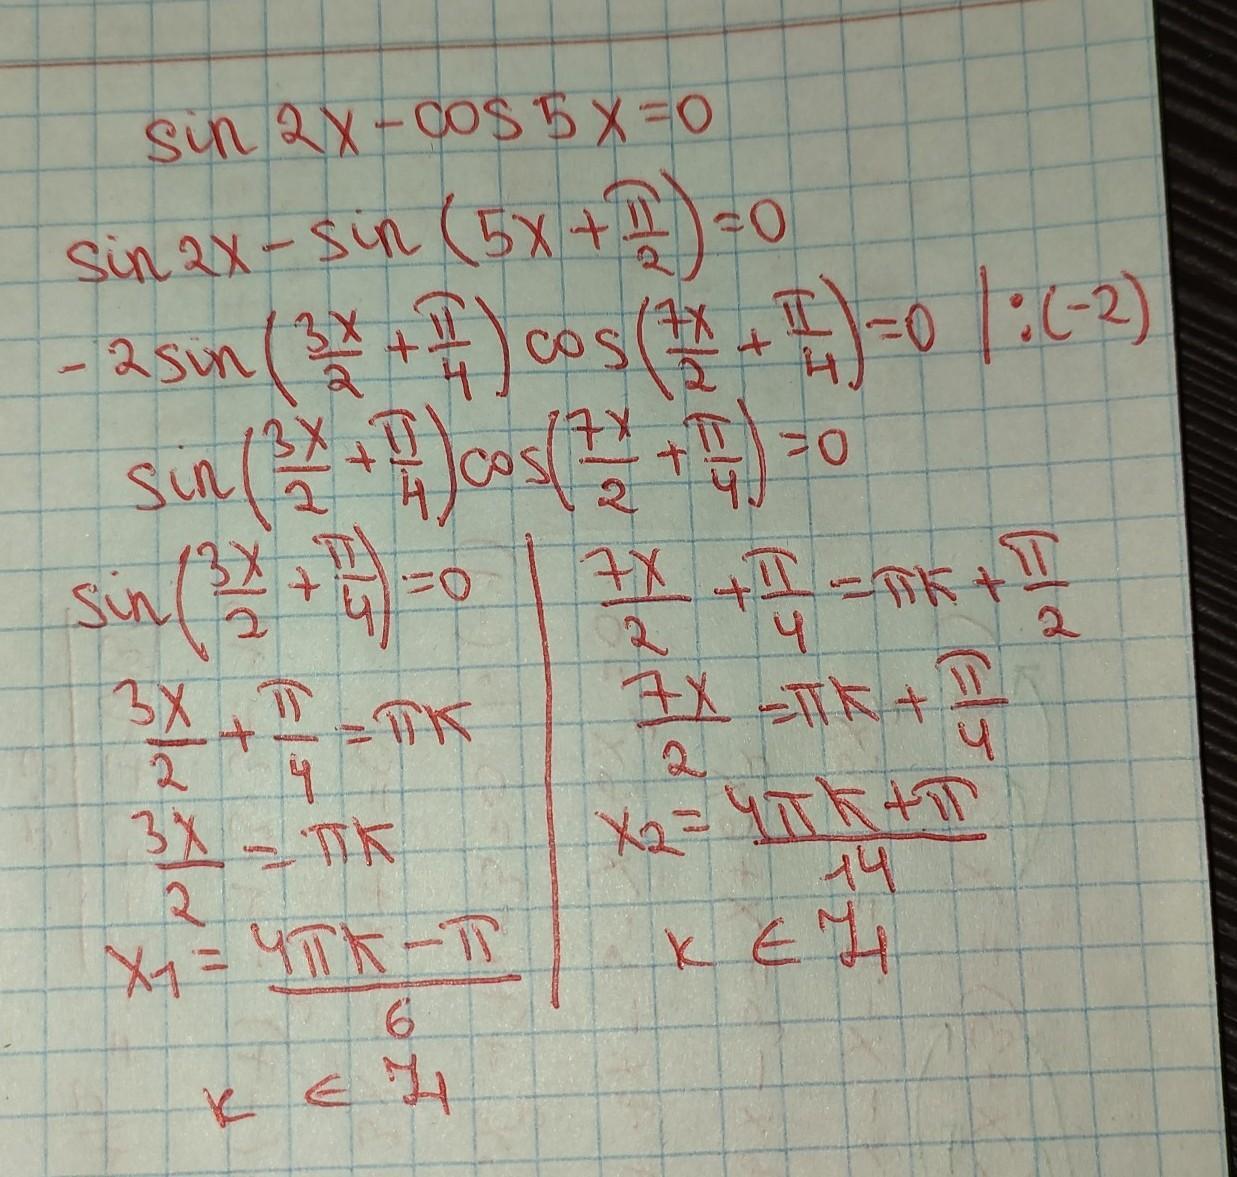 sin 2x - cos 5x = 0
sin 2x - sin (5x + π/2) = 0
- 2 sin (3x/2 + π/4) cos (7x/2 + π/4) = 0 | : (-2)
sin (3x/2 + π/4) cos (7x/2 + π/4) = 0
sin (3x/2 + π/4) = 0
3x/2 + π/4 = πk
3x/2 = πk
x₁ = (4πk - π)/6
k ∈ ℤ
7x/2 + π/4 = πk + π/2
7x/2 = πk + π/4
x₂ = (4πk + π)/14
k ∈ ℤ